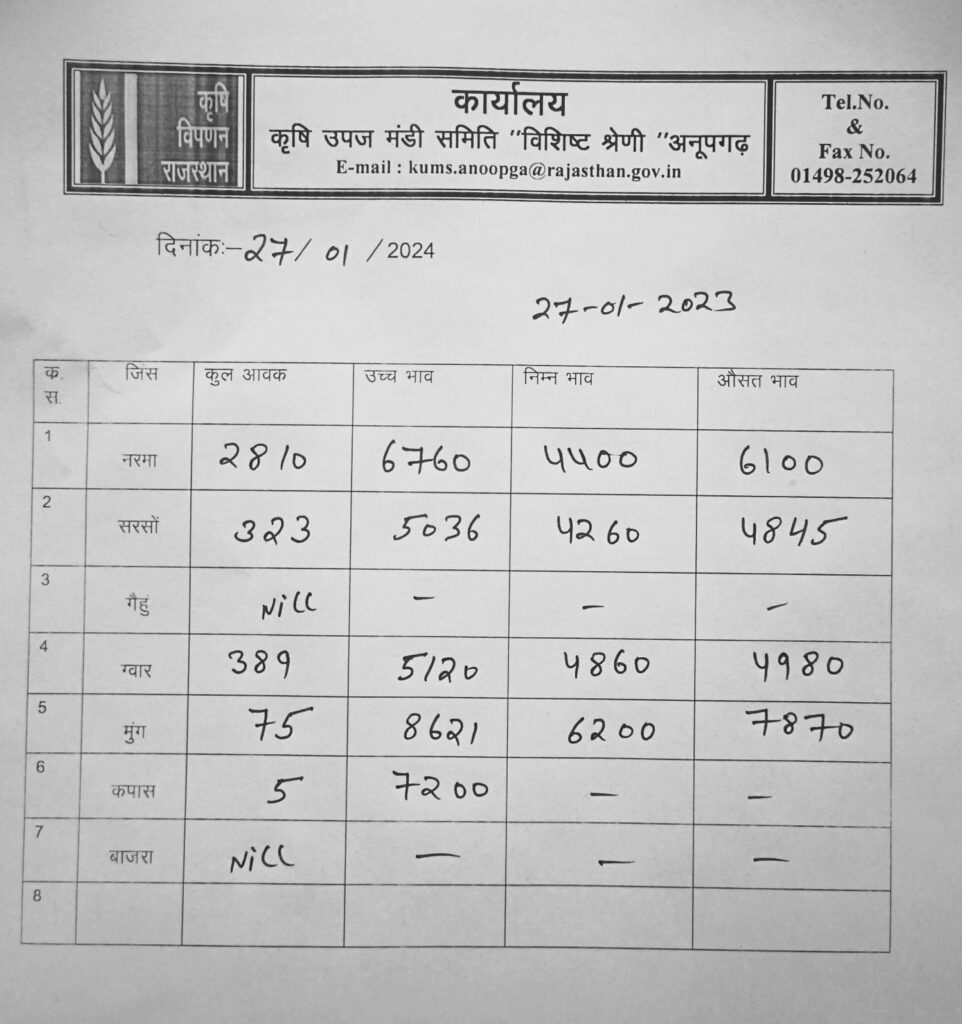 कृषि
विपणन
राजस्थान
कार्यालय
कृषि उपज मंडी समिति "विशिष्ट श्रेणी "अनूपगढ़
E-mail : kums.anoopga@rajasthan.gov.in
Tel.No.
&
Fax No.
01498-252064
दिनांकः–27/ 01 / 2024
27-01-2023
क. स. जिंस कुल आवक उच्च भाव निम्न भाव औसत भाव
1 नरमा 2810 6760 4400 6100
2 सरसों 323 5036 4260 4845
3 गैहुं Nill – – –
4 ग्वार 389 5120 4860 4980
5 मुंग 75 8621 6200 7870
6 कपास 5 7200 – –
7 बाजरा Nill – – –
8